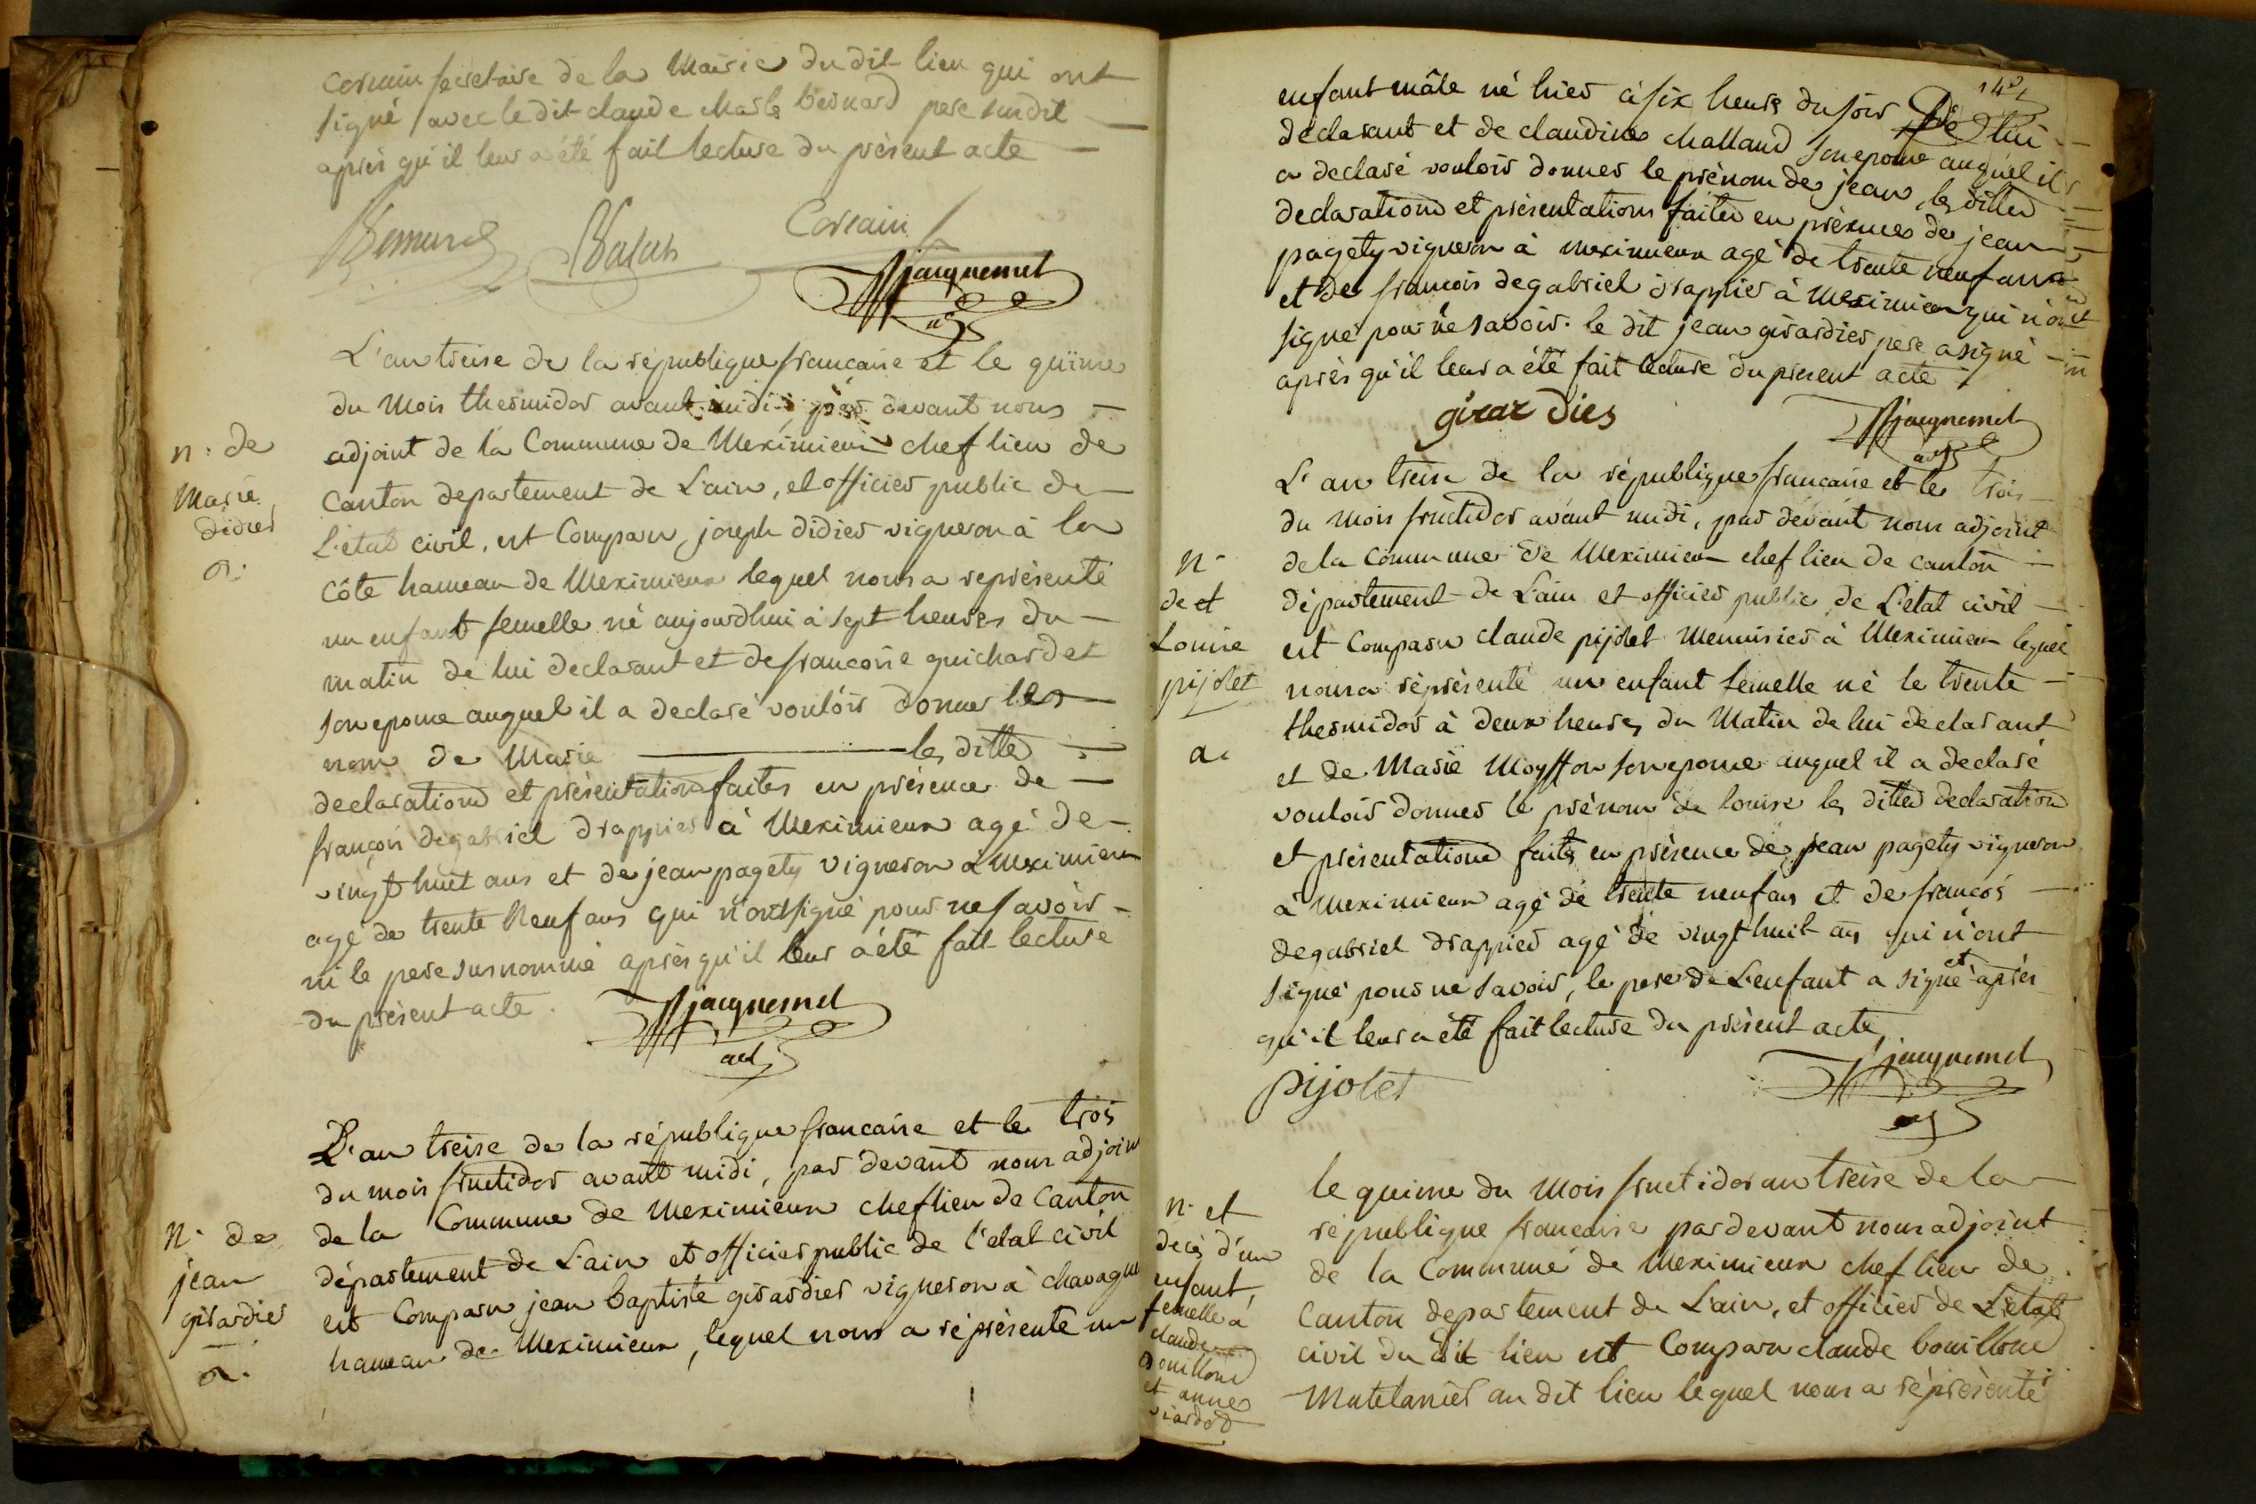 corcain secretaire de la Mairie du dit lieu qui ont
signé avec le dit claude Marle bernard pere susdit
après qu'il leur a été fait lecture du présent acte
Bernard
Corcain
jacquemet
adj
L'an treise de la république francaise et le quinse
du mois thermidor avant midi, par devant nous
adjoint de la Commune de Meximieux chef lieu de
canton departement de L'ain, et officier public de
L'état civil, est Comparu joseph didier vigneron à la
côte hameau de Meximieux lequel nous a représenté
un enfant femelle né aujourdhui à sept heures du
matin de lui declarant et de francoise guichardet
son epouse auquel il a declaré vouloir donner les
nom de Marie les dittes
declarations et présentations faites en présence de
françois degabriel drappier à Meximieux agé de
vingt huit ans et de jean pagety vigneron à Meximieux
agé de trente Neuf ans qui n'ont signé pour ne savoir
ni le pere susnommé après qu'il leur a été fait lecture
du présent acte.
jacquemet
adj
n. de
Marie
didier
a.
L'an treise de la république francaise et le trois
du mois fructidor avant midi, par devant nous adjoint
de la Commune de Meximieux chef lieu de canton
département de L'ain et officier public de l'etat civil
est Comparu jean baptiste girardier vigneron à chavagneu
hameau de Meximieux, lequel nous a réprésenté un
N. de
jean
girardier
a.
142
enfant mâle né hier à six heures du soir de lui
declarant et de claudine challand son epouse auquel il
a declaré vouloir donner le prénom de jean, les dittes
declarations et présentations faites en présence de jean
pagety vigneron à meximieux agé de trente neuf ans
et de francois degabriel drappier à Meximieux qui n'ont
signé pour ne savoir. le dit jean girardier pere a signé
après qu'il leur a été fait lecture du présent acte
girardier
jacquemet
adj
L'an treise de la république francaise et le trois
du mois fructidor avant midi, par dévant nous adjoint
de la commune de Meximieux chef lieu de canton
département de L'ain et officier public de L'état civil
est Comparu claude pijolet Menuisier à Meximieux lequel
nous a réprésenté un enfant femelle né le trente
thermidor à deux heures du Matin de lui declarant
et de Marie Moysson son epouse auquel il a declaré
vouloir donner le prénom de louise les dittes declarations
et présentations faites en présence de jean pagety vigneron
à meximieux agé de trente neuf ans et de francois
degabriel drappier agé de vingt huit ans qui n'ont
signé pour ne savoir, le pere de L'enfant a signé et après
qu'il leur a été fait lecture du présent acte,
pijolet
jacquemet
adj
N.
de et
Louise
pijolet
a.
le quinse du Mois fructidor an treise de la
république francaise par devant nous adjoint
de la Commune de Meximieux chef lieu de
canton departement de L'ain, et officier de L'etat
civil du dit lieu est Comparu claude bouillond
Matelassier au dit lieu lequel nous a réprésenté
n. et
decès d'un
enfant
femelle à
claude
bouillond
et anne
viardot